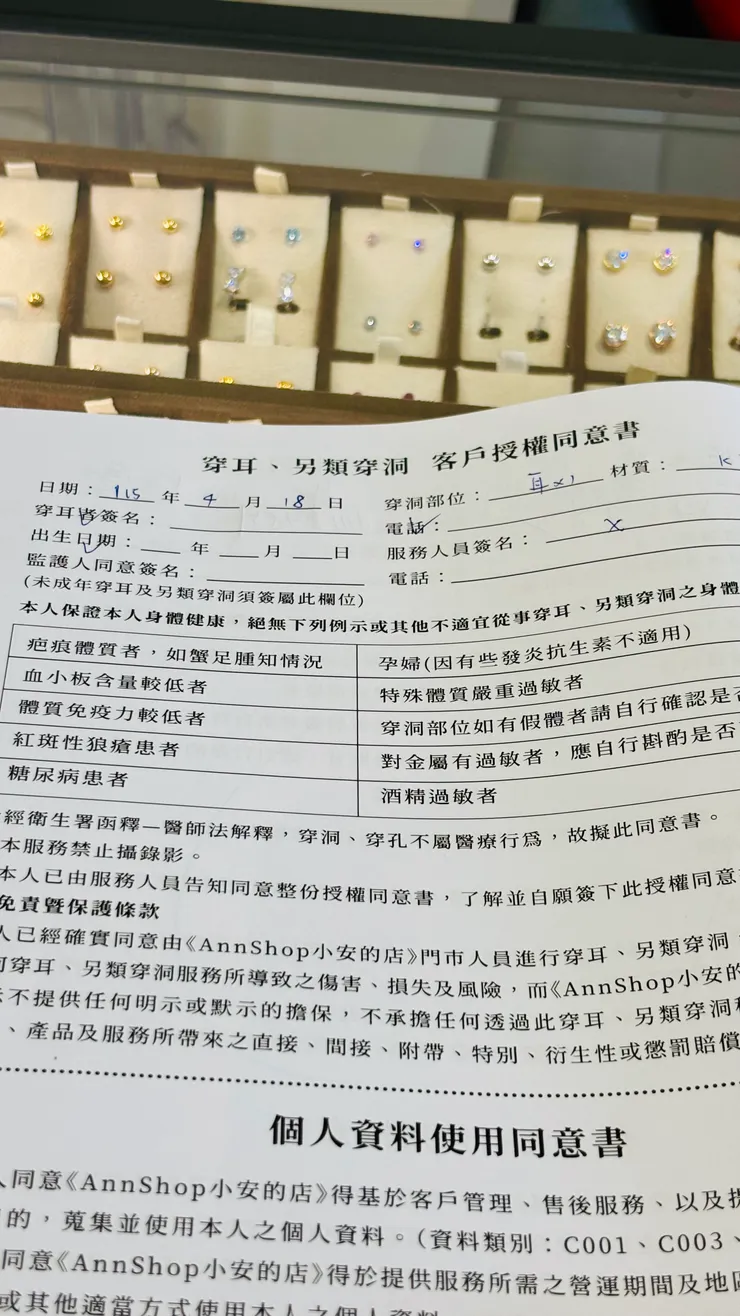 穿耳、另類穿洞 客戶授權同意書
日期：115年4月18日 穿洞部位：耳x1 材質：K
穿耳者簽名： 電話：
出生日期：年月日 服務人員簽名：X
監護人同意簽名： 電話：
(未成年穿耳及另類穿洞須簽屬此欄位)
本人保證本人身體健康，絕無下列例示或其他不適宜從事穿耳、另類穿洞之身體
疤痕體質者，如蟹足腫知情況 孕婦(因有些發炎抗生素不適用)
血小板含量較低者 特殊體質嚴重過敏者
體質免疫力較低者 穿洞部位如有假體者請自行確認是否
紅斑性狼瘡患者 對金屬有過敏者，應自行斟酌是否
糖尿病患者 酒精過敏者
經衛生署函釋—醫師法解釋，穿洞、穿孔不屬醫療行為，故擬此同意書。
本服務禁止攝錄影。
本人已由服務人員告知同意整份授權同意書，了解並自願簽下此授權同意
免責暨保護條款
人已經確實同意由《AnnShop小安的店》門市人員進行穿耳、另類穿洞
何穿耳、另類穿洞服務所導致之傷害、損失及風險，而《AnnShop小安的
不提供任何明示或默示的擔保，不承擔任何透過此穿耳、另類穿洞
、產品及服務所帶來之直接、間接、附帶、特別、衍生性或懲罰賠償
個人資料使用同意書
人同意《AnnShop小安的店》得基於客戶管理、售後服務、以及提
的，蒐集並使用本人之個人資料。（資料類別：C001、C003、
同意《AnnShop小安的店》得於提供服務所需之營運期間及地區
或其他適當方式使用本人之個人資料